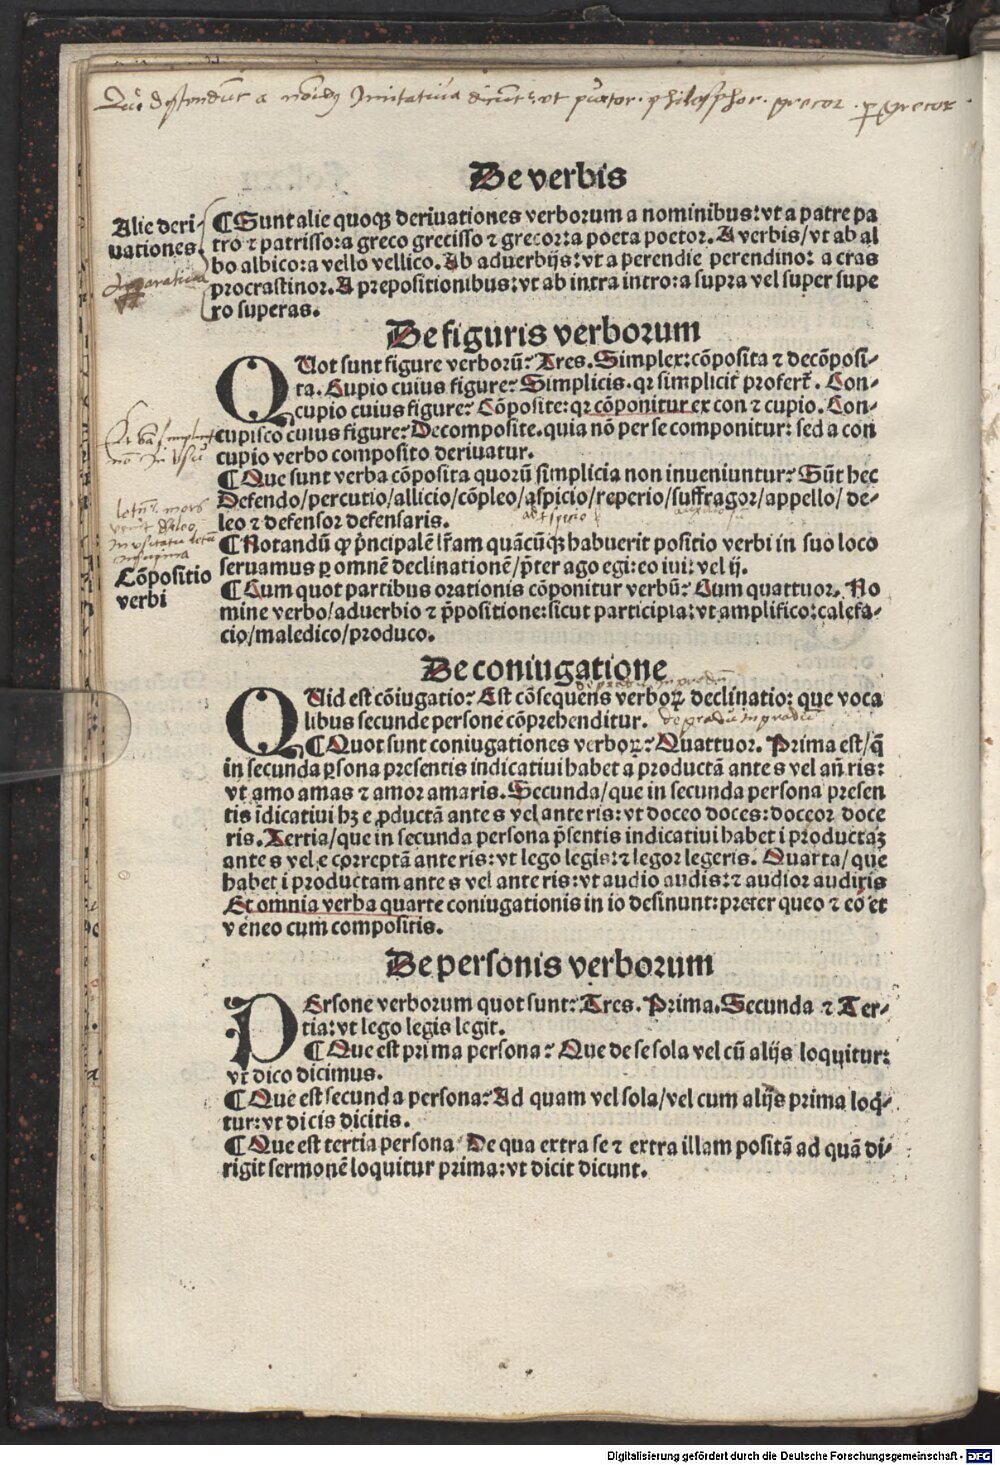 De verbis
Alie deri-
uationes.
¶ Sunt alie quoqꝫ deriuationes verborum a nominibus: vt a patre pa
tro ⁊ patrisso: a greco grecisso ⁊ grecor: a poeta poetor. A verbis/ vt ab al
bo albico: a vello vellico. Ab aduerbijs: vt a perendie perendino: a cras
procrastinor. A prepositionibus: vt ab intra intro: a supra vel super supe
ro superas.
De figuris verborum
QUot sunt figure verborū? Tres. Simplex: cōposita ⁊ decōposi-
ta. Cupio cuius figure? Simplicis. qꝛ simpliciť profert̃. Con-
cupio cuius figure? Cōposite: qꝛ cōponitur ex con ⁊ cupio. Con-
cupisco cuius figure? Decomposite. quia nō per se componitur: sed a con
cupio verbo composito deriuatur.
¶ Que sunt verba cōposita quorū simplicia non inueniuntur? Sūt hec
Defendo/percutio/allicio/cōpleo/aspicio/reperio/suffragor/appello/de-
leo ⁊ defensor defensaris.
¶ Notandū ꝙ pͥncipalē lr̃am quācūqꝫ habuerit positio verbi in suo loco
seruamus ꝑ omnē declinationē/ p̄ter ago egi: eo iui: vel ij.
Cōpositio
verbi
¶ Cum quot partibus orationis cōponitur verbū? Cum quattuor. No
mine verbo/aduerbio ⁊ p̄positione: sicut participia: vt amplifico: calefa-
cio/maledico/produco.
De coniugatione
QUid est cōiugatio? Est cōsequens verboꝝ declinatio: que voca
libus secunde persone cōprehenditur.
de gradu in gradū
¶ Quot sunt coniugationes verboꝝ? Quattuor. Prima est/ q̄
in secunda ꝑsona presentis indicatiui habet a productā ante s vel añ ris:
vt amo amas ⁊ amor amaris. Secunda/ que in secunda persona presen
tis īdicatiui hꝫ e ꝓductā ante s vel ante ris: vt doceo doces: doceor doce
ris. Tertia/ que in secunda persona p̄sentis indicatiui habet i productaꝫ
ante s vel e correptā ante ris: vt lego legis: ⁊ legor legeris. Quarta/ que
habet i productam ante s vel ante ris: vt audio audis: ⁊ audior audiris
Et omnia verba quarte coniugationis in io desinunt: preter queo ⁊ eo et
veneo cum compositis.
De personis verborum
PErsone verborum quot sunt? Tres. Prima. Secunda ⁊ Ter-
tia: vt lego legis legit.
¶ Que est prima persona? Que de se sola vel cū alijs loquitur:
vt dico dicimus.
¶ Que est secunda persona? Ad quam vel sola/ vel cum alijs prima loq̄-
tur: vt dicis dicitis.
¶ Que est tertia persona? De qua extra se ⁊ extra illam positā ad quā di-
rigit sermonē loquitur prima: vt dicit dicunt.
Digitalisierung gefördert durch die Deutsche Forschungsgemeinschaft - DFG